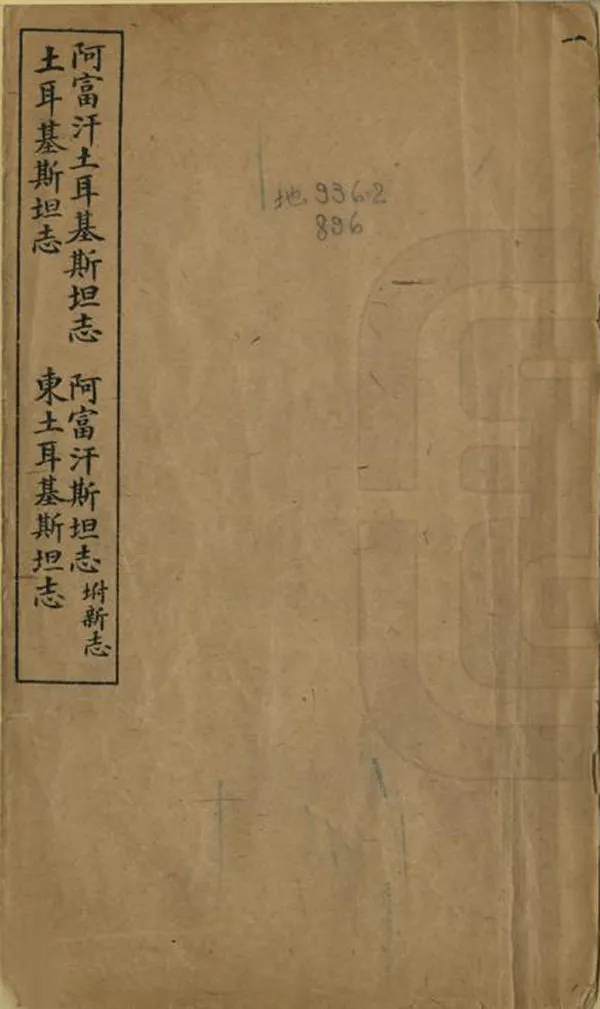 阿富汗土耳基斯坦志 阿富汗斯坦志 坿新志
土耳基斯坦志 東土耳基斯坦志
地936·2
896